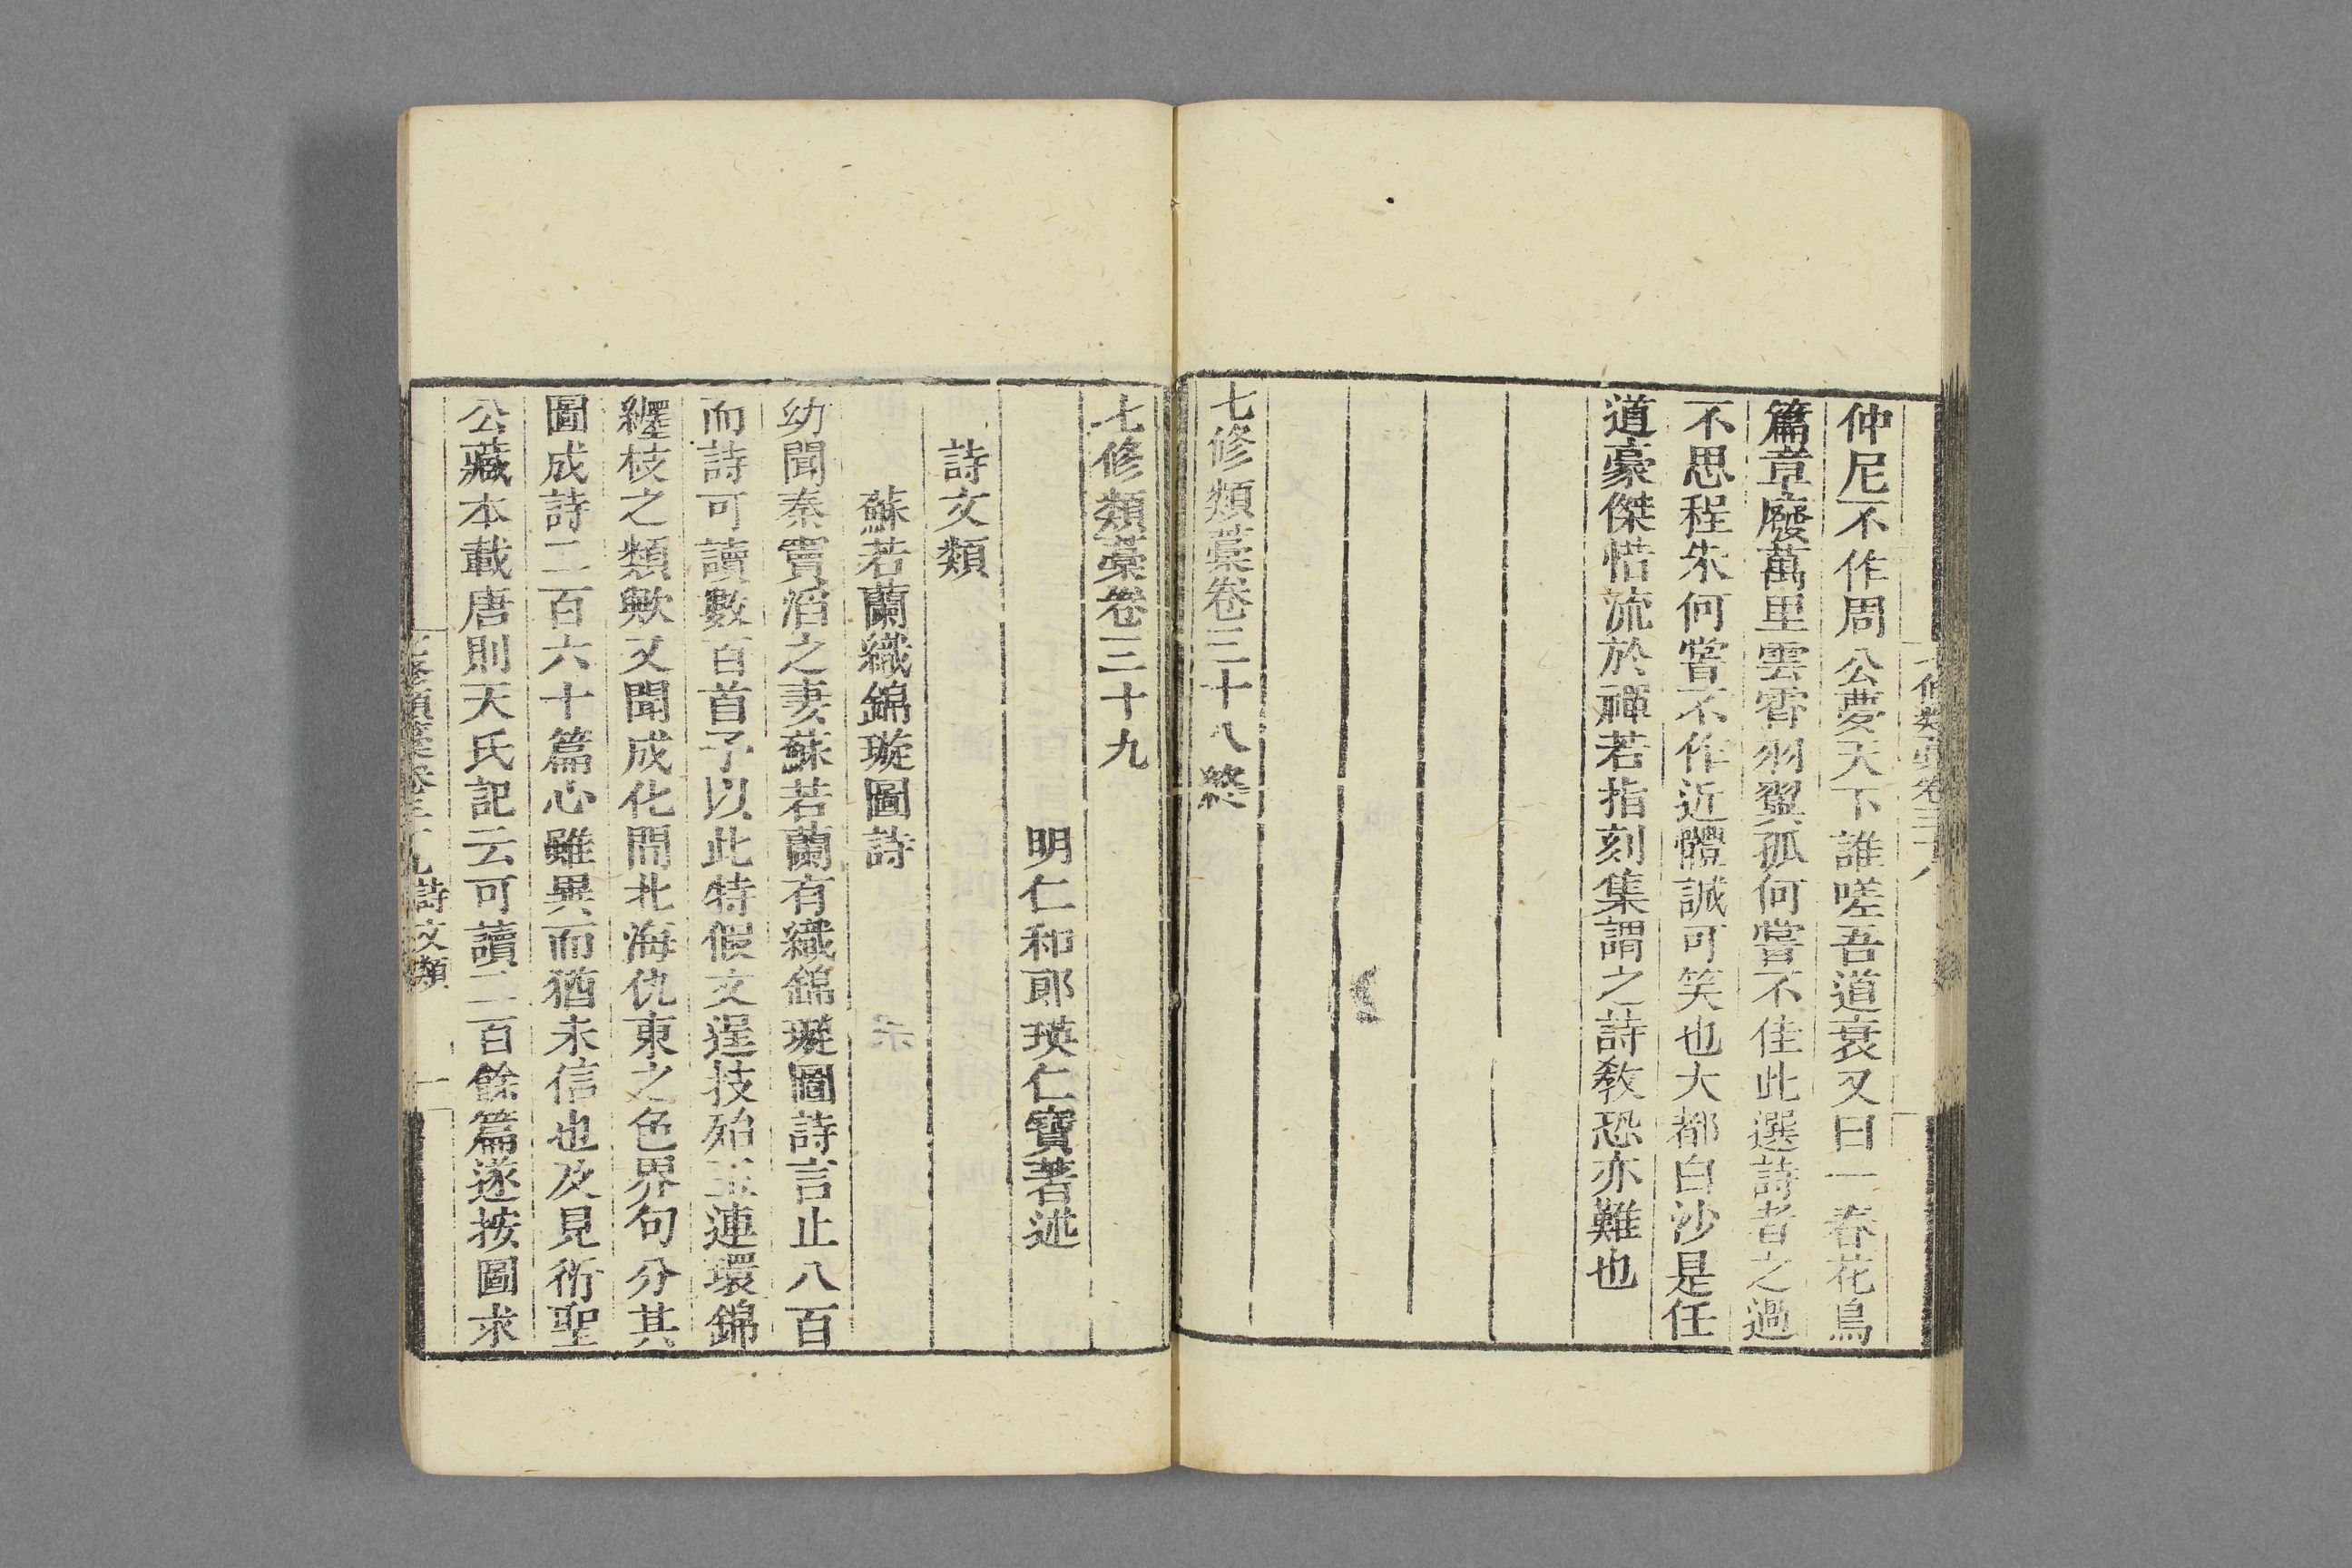 仲尼不作周公夢天下誰嗟吾道衰又曰一春花鳥
篇章廢萬里雲霄羽翼孤何嘗不佳此選詩者之過
不思程朱何嘗不作近體誠可笑也大都白沙是任
道豪傑惜流於禪若指刻集謂之詩教恐亦難也
七修類藁卷三十八終
七修類藁卷三十九
明仁和郎瑛仁寶著述
詩文類
蘇若蘭織錦璇圖詩
幼聞秦竇滔之妻蘇若蘭有織錦璇圖詩言止八百
而詩可讀數百首予以此特假文逞技殆玉連環錦
纏枝之類歟又聞成化間北海仇東之色界句分其
圖成詩二百六十篇心雖異而猶未信也及見衍聖
公藏本載唐則天氏記云可讀二百餘篇遂按圖求
詩文類
一